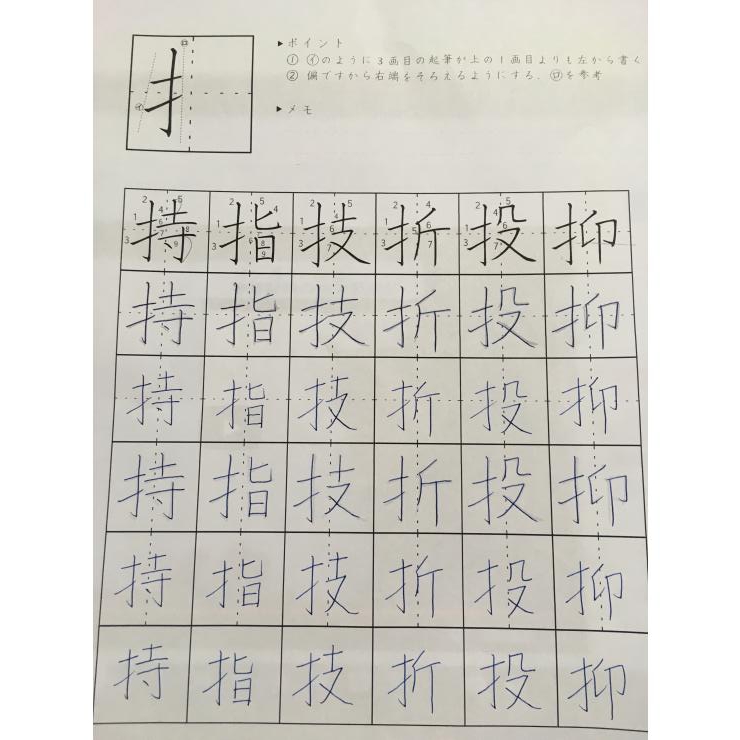 扌
ロ
イ
▶ポイント
① ㋑のように3画目の起筆が上の1画目よりも左から書く
② 偏ですから右端をそろえるようにする。㋺を参考
▶メモ
持 指 技 折 投 抑
持 指 技 折 投 抑
持 指 技 折 投 抑
持 指 技 折 投 抑
持 指 技 折 投 抑
持 指 技 折 投 抑